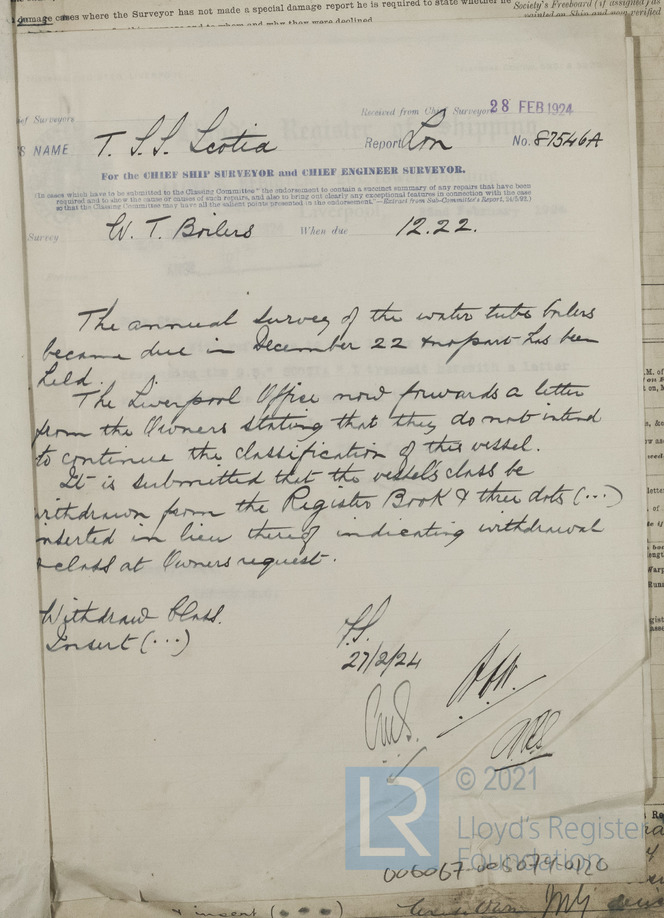 damage cases where the Surveyor has not made a special damage report he is required to state whether he
Society's Freeboard (if assigned) as
painted on Ship and verified
Received from Chief Surveyor 28 FEB 1924
ef Surveyors
S NAME T. S. S. Scotia Report Lon No. 87546A
For the CHIEF SHIP SURVEYOR and CHIEF ENGINEER SURVEYOR.
(In cases which have to be submitted to the Classing Committee "the endorsement to contain a succinct summary of any repairs that have been
required and to show the cause or causes of such repairs, and also to bring out clearly any exceptional features in connection with the case
so that the Classing Committee may have all the salient points presented in the endorsement."—Extract from Sub-Committee's Report, 24/5/93.)
Survey W. T. Boilers When due 12.22.
The annual survey of the water tube boilers
became due in December 22 & no part has been
held.
The Liverpool Office now forwards a letter
from the Owners stating that they do not intend
to continue the classification of this vessel.
It is submitted that the vessel's class be
withdrawn from the Register Book & three dots (...)
nserted in lieu thereof indicating withdrawal
class at Owners request.
Withdraw Class.
Insert (...)
27/2/24
LR © 2021
Lloyd's Register
Foundation
006067-005074-0120
insert (...)